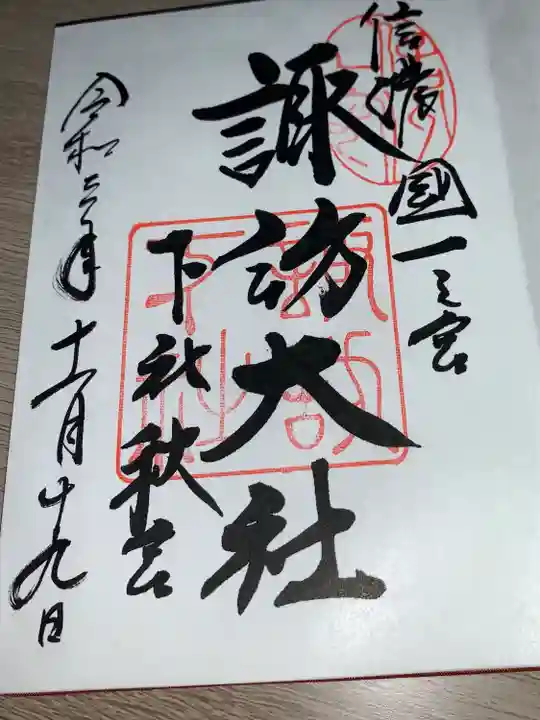 信濃國一之宮
諏訪大社
下社秋宮
令和六年十一月十九日